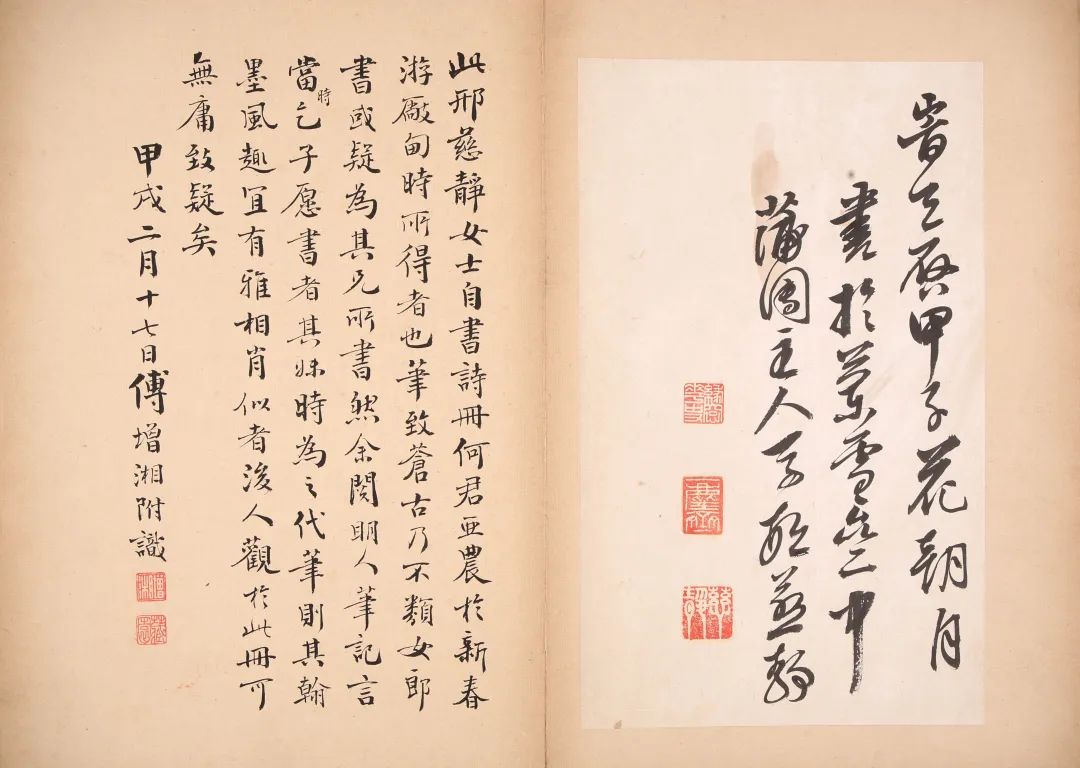 旹天啓甲子花朝月
書於蘭雪齋中
蒲團主人馬邢慈靜
慈靜
此邢慈靜女士自書詩冊何君亞農於新春
游廠甸時所得者也筆致蒼古乃不類女郎
書或疑為其兄所書然余閱明人筆記言
當時乞子愿書者其妹時為之代筆則其翰
墨風趣宜有雅相肖似者後人觀於此冊可
無庸致疑矣
甲戌二月十七日傅增湘附識